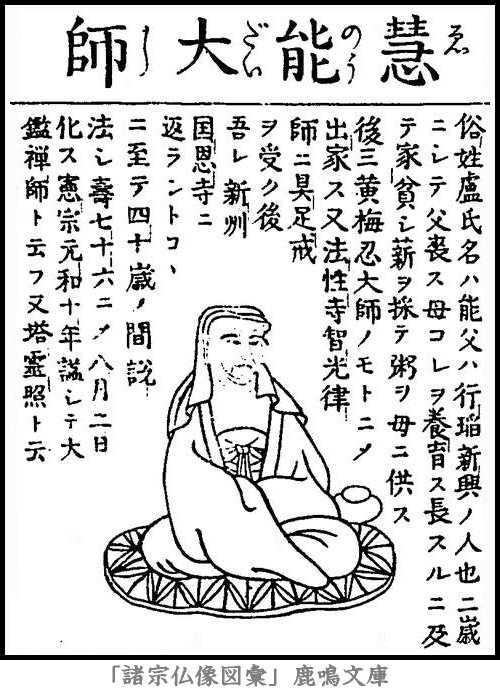 慧能大師
ゑのうだいし
俗姓盧氏名ハ能父ハ行瑫新興ノ人也二歳
ニシテ父喪ス母コレヲ養育ス長スルニ及
テ家貧シ薪ヲ採テ粥ヲ母ニ供ス
後三黄梅忍大師ノモトニメ
出家ス又法性寺智光律
師ニ具足戒
ヲ受ク後
吾レ新州
国恩寺ニ
返ラントコヽ
ニ至テ四十歳ノ間説
法シ壽七十六ニメ八月二日
化ス憲宗元和十年謚シテ大
鑑禅師ト云フ又塔霊照ト云
「諸宗仏像図彙」鹿鳴文庫